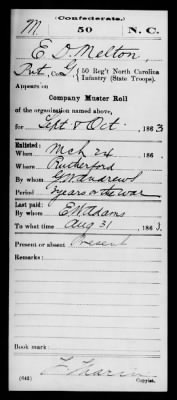 (Confederate.)
M 50 N. C.
E. O. Melton
Pvt, Co. G, 50 Reg't North Carolina
Infantry (State Troops).
Appears on
Company Muster Roll
of the organization named above,
for Sept & Oct, 1863
Enlisted:
When Mch 24, 186 .
Where Rutherford
By whom G.W. Andrews
Period 3 years or the war
Last paid:
By whom E.W. Adams
To what time Aug 31, 1863.
Present or absent Present
Remarks:
Book mark:
(642) Copyist.